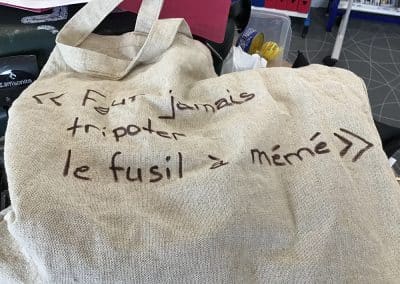 « Faut jamais
tripoter
le fusil à mémé »